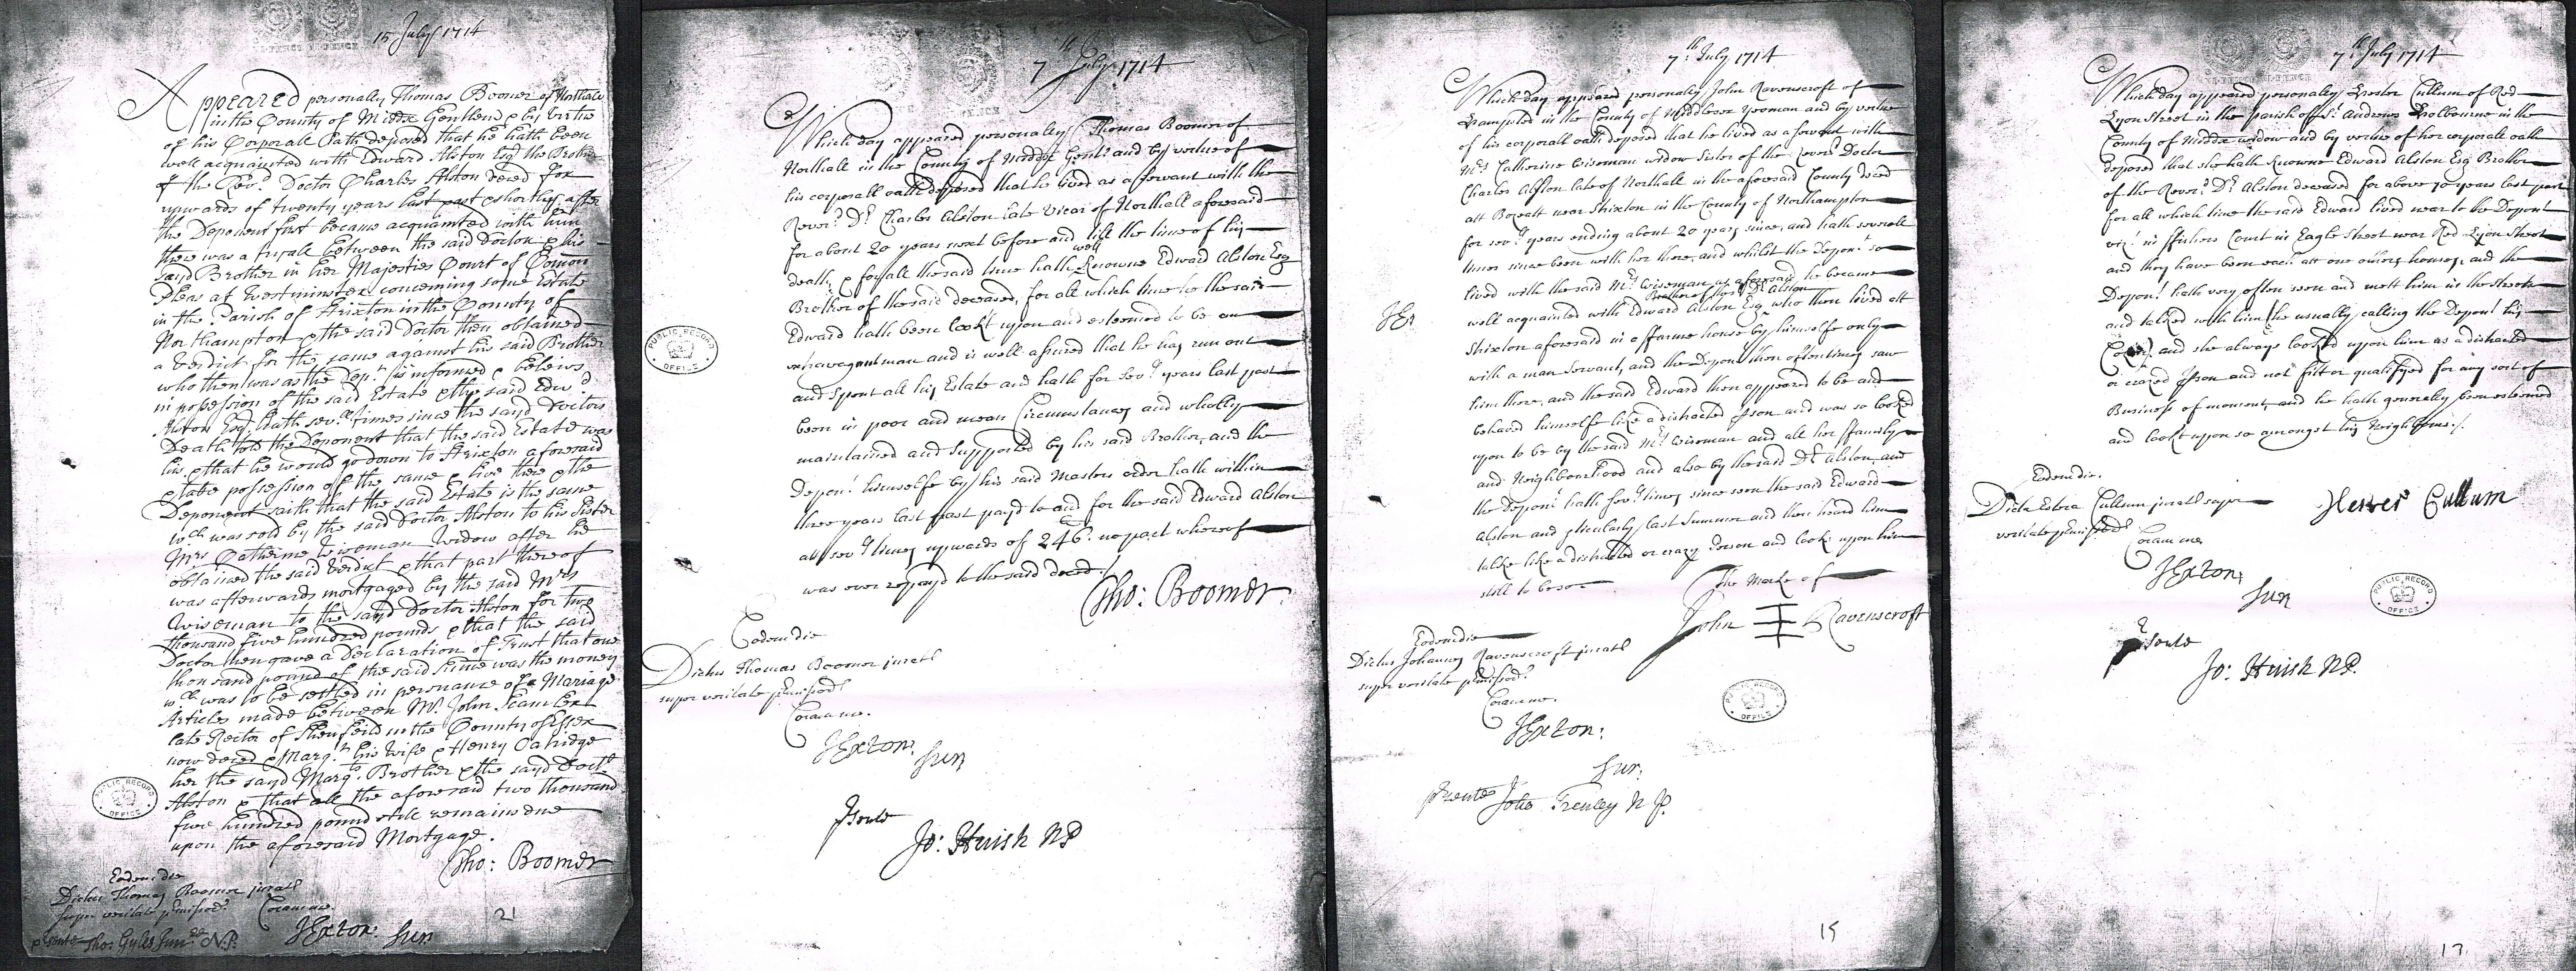 15 July 1714
Appeared personally Thomas Boomer of Northale
in the County of Middx Gentleman & by virtue
of his Corporall Oath deposed that he hath been
well acquainted with Edward Alston Esqr the Brother
of the Revd. Doctor Charles Alston deced for
upwards of twenty years last past & shortly after
the Deponent first became acquainted with him
there was a tryale between the said Doctor & his
sayd Brother in her Majesties Court of Comon
Pleas at Westminster concerning some Estate
in the Parish of Strixton in the County of
Northampton & the said Doctor then obtained
a Verdict for the same against his said Brother
who then was as the Dept. is informed & beleivs
in possession of the said Estate & the said Edwd
Alston Esq. hath sevll times since the sayd Doctors
Death told the Deponent that the said Estate was
his & that he would go down to Strixton aforesaid
& take possession of the same & live there & the
Deponent saith that the said Estate is the same
wch was sold by the said Doctor Alston to his Sister
Mrs Catherine Wiseman Widow after he
obtained the said Verdict & that part thereof
was afterwards mortgaged by the said Mrs
Wiseman to the sayd Doctor Alston for two
thousand five hundred pounds & that the said
Doctor then gave a Declaration of Trust that one
thousand pound of the said Summe was the money
wch was to be settled in persuance of a Mariage
Articles made between Mr. John Scamler
late Rector of Shenfeild in the County of Essex
now deced & Margt. his Wife & Henry Oatridge
her the sayd Margts. Brother & the sayd Doctr
Alston & that all the aforesaid two thousand
five hundred pound still remains due
upon the aforesaid Mortgage.
Tho: Boomer
Eodem die
Dictus Thomas Boomer jurat
super veritate pmissor
Coram me.
JExton: Sur
psente Tho: Gyles Junr N.P.
21
PUBLIC RECORD OFFICE
7th July 1714
Which day appeared personally Thomas Boomer of
Northall in the County of Middx Gent: and by vertue of
his corporall oath deposed that he lived as a servant with the
Reverd. Dr. Charles Alston late Vicar of Northall aforesaid
for about 20 years next before and till the time of his
death, & for all the said time hath well knowne Edward Alston Esq
Brother of the said deceased, for all which time he the said
Edward hath been lookt upon and esteemed to be an
extravagant man and is well assured that he has run out
and Spent all his Estate and hath for sevll years last past
been in poor and mean Circumstances and wholly
maintained and Supported by his said Brother, and the
Depont himselfe by his said Masters order hath within
three years last past payd to and for the said Edward Alston
att sevll times upwards of 246l. no part whereof
was ever repayd to the said deced./
Tho: Boomer
Eodem die
Dictus Thomas Boomer jurat
super veritate pmissor
Coram me.
JExton: Sur
Psente
Jo: Huish NP
PUBLIC RECORD OFFICE
7th. July 1714
Which day appeared personaly John Ravenscroft of
Hampsted in the County of Middlesex Yeoman and by vertue
of his corporall oath deposed that he lived as a servant with
Mrs Catherine Wiseman widow Sister of the Reverd Doctor
Charles Alston late of Northall in the aforesaid County deced
att Bozeatt near Strixton in the County of Northampton
for sevll years ending about 20 years since, and hath severall
times since been with her there, and whilst the Depont so
lived with the said Mrs Wiseman as aforesaid he became
well acquainted with Edward Alston Esq Brother of this Dr. Alston who then lived att
Strixton aforesaid in a ffarme house by himselfe only
with a man Servant, and the Depont then often times saw
him there, and the said Edward then appeared to be and
behaved himselfe like a distracted pson and was so looked
upon to be by the said Mrs Wiseman and all her ffamily
and Neighbourhood and also by the said Dr. Alston, and
the Depont hath sevll times since seen the said Edward
Alston and pticularly last Summer and then heard him
talke like a distracted or crazy Person and looks upon him
still to be so
The Marke of
John Ravenscroft
Eodem die
Dictus Johannes Ravenscroft jurat
super veritate pmissor
Coram me.
JExton:
Sur.
psente John Frenley N P.
15
PUBLIC RECORD OFFICE
7th July 1714
Which day appeared personaley Hester Cullum of Red
Lyon Street in the parish of St. Andrews Holbourne in the
County of Middx widow and by vertue of her corporall oath
deposed that she hath knowne Edward Alston Esq Brother
of the Reverd. Dr. Alston deceased for above 10 years last past
for all which time the said Edward lived near to the Depont
vizt. in ffishers Court in Eagle Street near Red Lyon Street
and they have been each att one others houses, and the
Depont hath very often seen and mett him in the streets
and talked with him, he usually calling the Depont his
and she always looked upon him as a distracted
or crazed pson and not fitt or qualifyed for any sort of
Business of moment, and he hath generally been esteemed
and lookt upon so amongst his Neighbours./
Hester Cullum
Eodem die.
Dicta Estera Cullum jurat super
veritate pmissor
Coram me
JExton:
Sur
Psente
Jo: Huish NP.
PUBLIC RECORD OFFICE
13